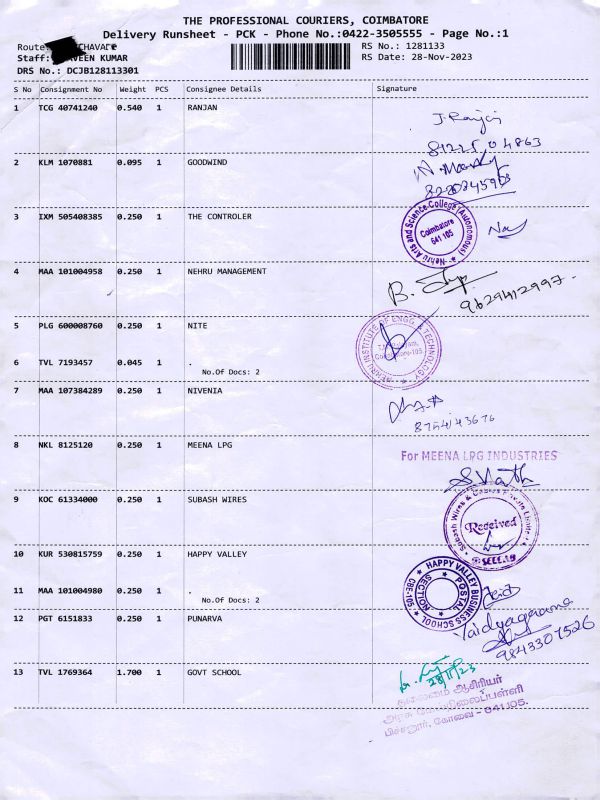 THE PROFESSIONAL COURIERS, COIMBATORE
Delivery Runsheet - PCK - Phone No.:0422-3505555 - Page No.:1
Route: CHAVADI
Staff: VEEN KUMAR
DRS No.: DCJB128113301
RS No.: 1281133
RS Date: 28-Nov-2023
S No Consignment No Weight PCS Consignee Details Signature
1 TCG 40741240 0.540 1 RANJAN
J. Ranjan
2 KLM 1070881 0.095 1 GOODWIND
3 IXM 505408385 0.250 1 THE CONTROLER
Nehru Arts and Science College (Autonomous)
Coimbatore
641 105
4 MAA 101004958 0.250 1 NEHRU MANAGEMENT
9629412997.
5 PLG 600008760 0.250 1 NITE
NEHRU INSTITUTE OF ENGG. & TECHNOLOGY
Coimbatore-105
6 TVL 7193457 0.045 1 .
No.Of Docs: 2
7 MAA 107384289 0.250 1 NIVENIA
8754143676
8 NKL 8125120 0.250 1 MEENA LPG
For MEENA LPG INDUSTRIES
9 KOC 61334000 0.250 1 SUBASH WIRES
Subash Wires & Cables Private Limited
Received
10 KUR 530815759 0.250 1 HAPPY VALLEY
HAPPY VALLEY BUSINESS SCHOOL
CBE-105
POSTAL SECTION
11 MAA 101004980 0.250 1 .
No.Of Docs: 2
12 PGT 6151833 0.250 1 PUNARVA
9843307526
13 TVL 1769364 1.700 1 GOVT SCHOOL
28/11/23
தலைமை ஆசிரியர்
அரசு மேல்நிலைப்பள்ளி
பிச்சனூர், கோவை - 641 105.